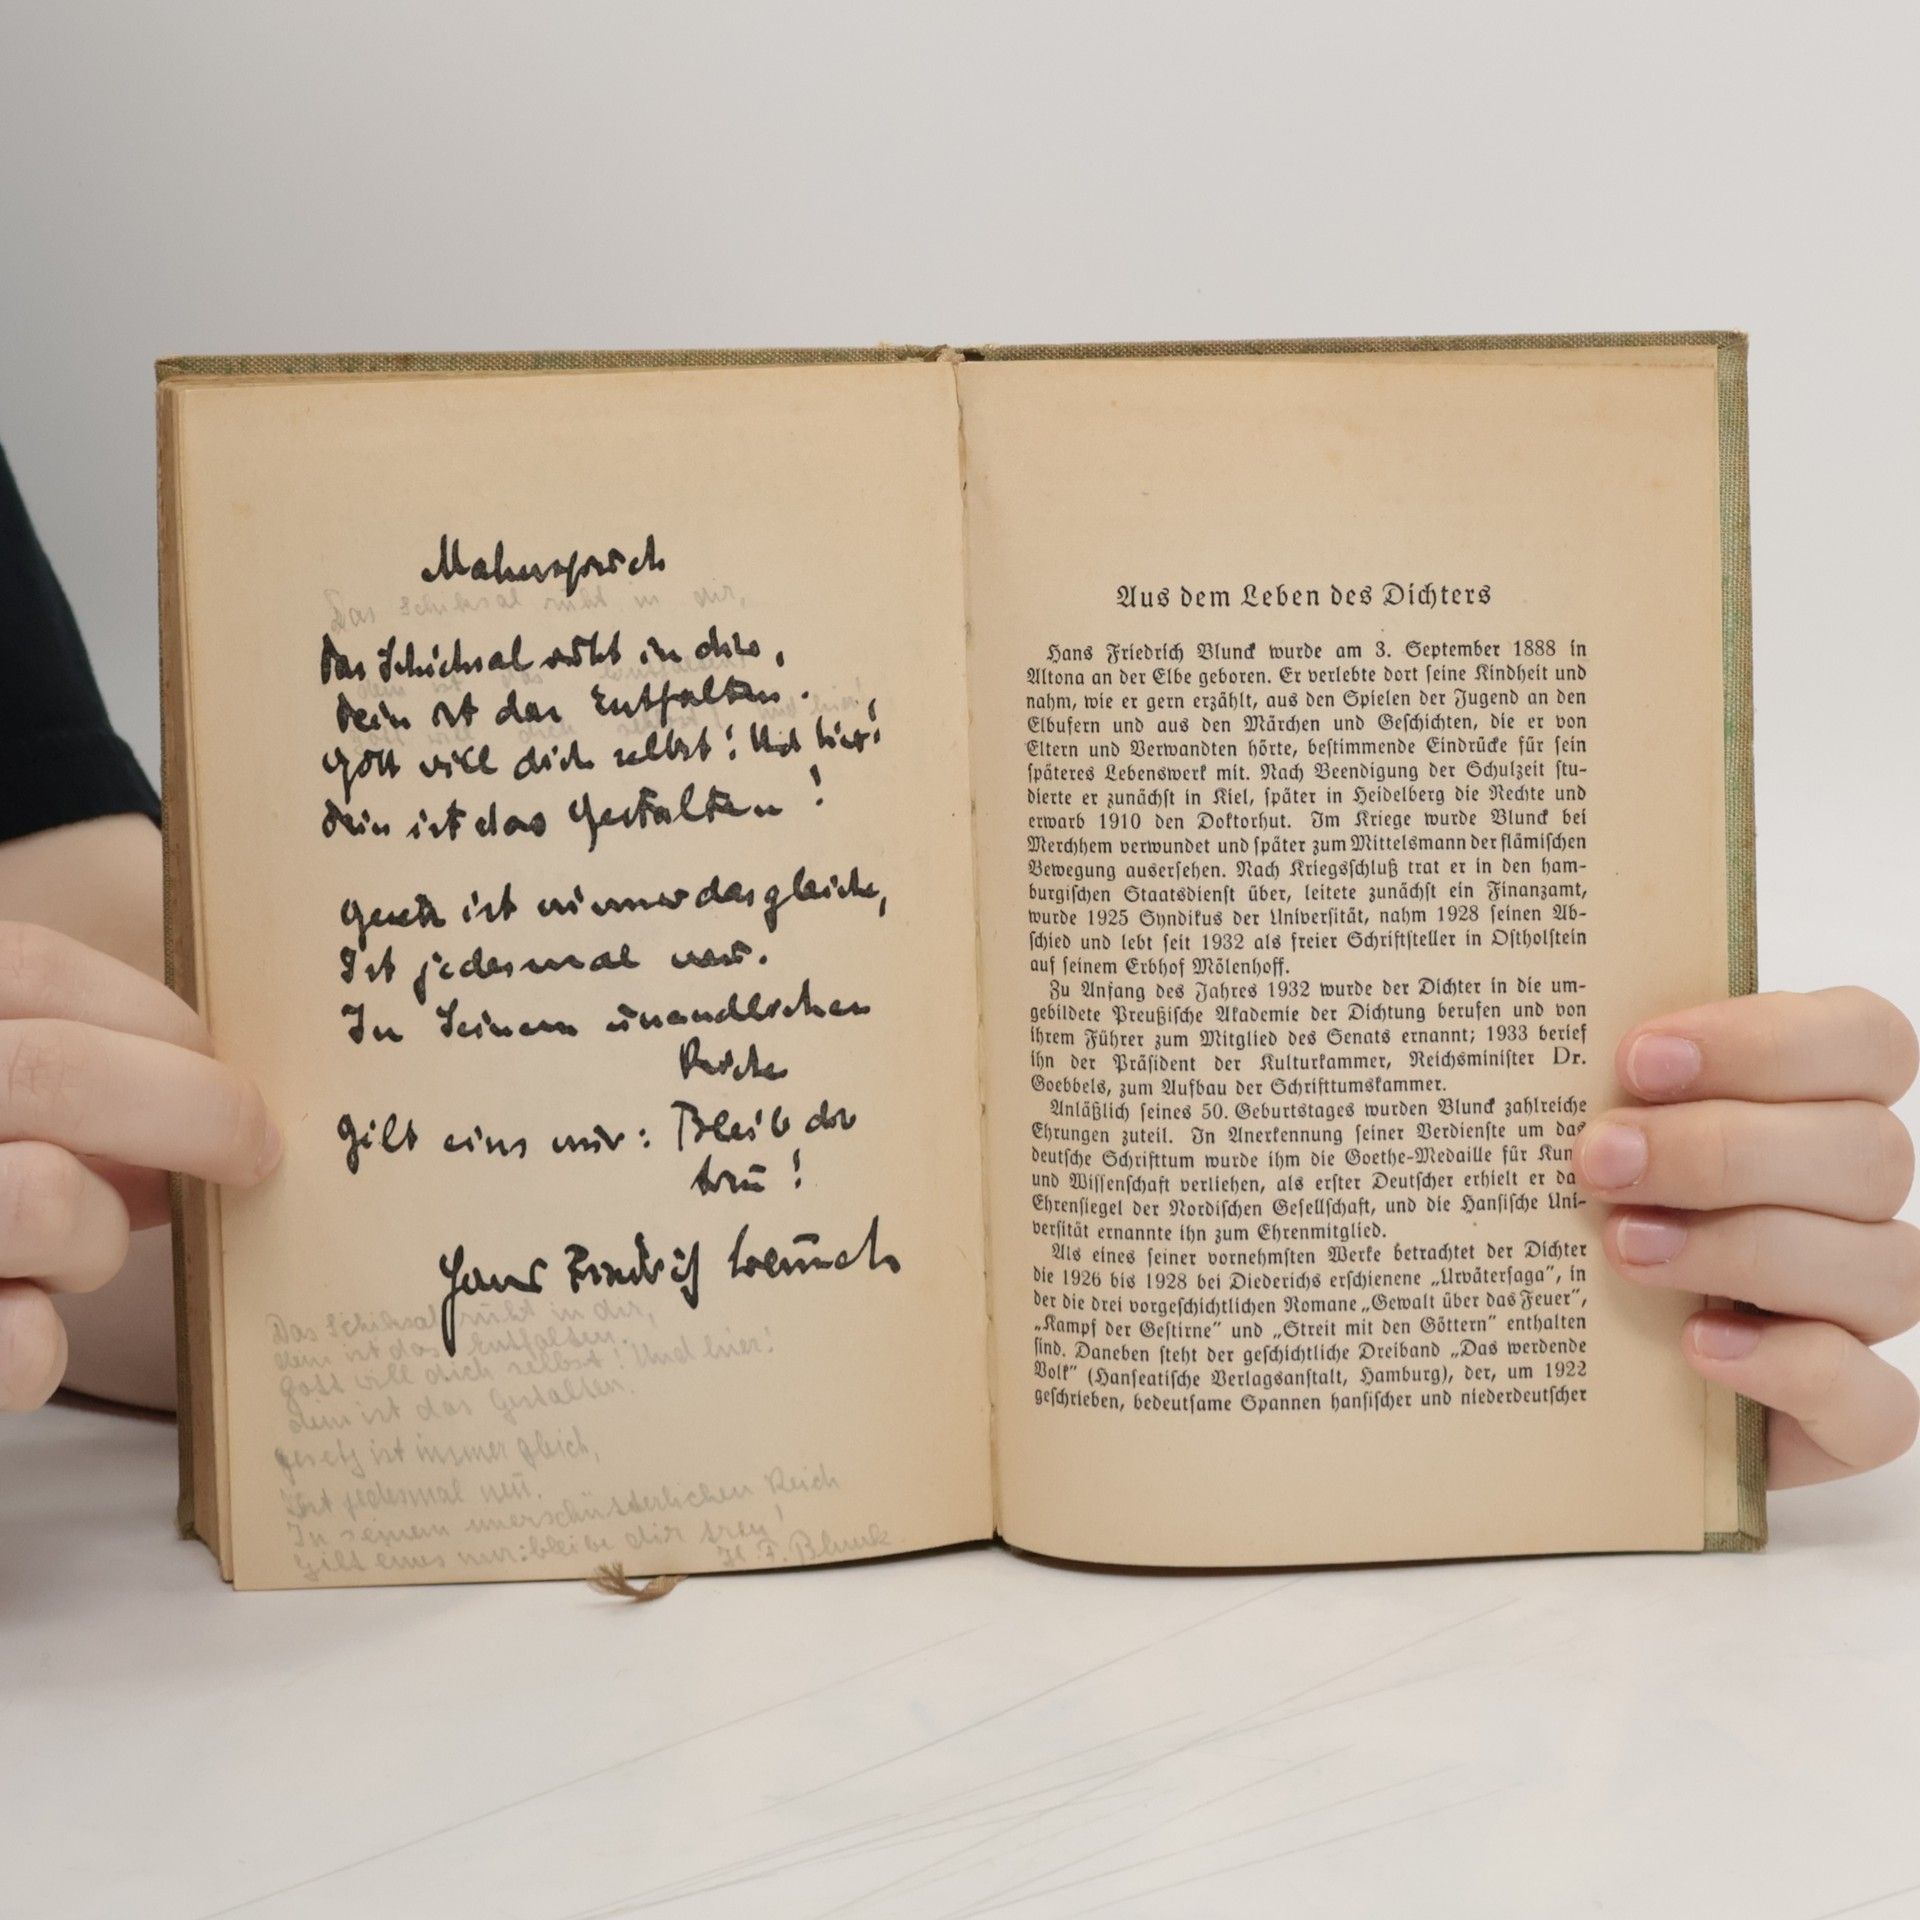 Mahnspruch
Das Schicksal ruht in dir,
Das Schicksal ruht in dir,
Dein ist das Entfalten.
Gott will dich selbst! Und hier!
Dein ist das Gestalten!
Gesetz ist immer das gleiche,
Ist jedesmal neu.
In Seinem unendlichen
Reiche
Gilt eins nur: Bleib dir
treu!
Hans Friedrich Blunck
Das Schiksal ruht in dir,
dein ist das Entfalten.
Gott will dich selbst! Und hier!
dein ist das Gestalten.
gesetz ist immer gleich,
Ist jedesmal neu.
In seinem unerschütterlichen Reich
Gilt eines nur: bleibe dir treu!
H. F. Blunck
Aus dem Leben des Dichters
Hans Friedrich Blunck wurde am 3. September 1888 in
Altona an der Elbe geboren. Er verlebte dort seine Kindheit und
nahm, wie er gern erzählt, aus den Spielen der Jugend an den
Elbufern und aus den Märchen und Geschichten, die er von
Eltern und Verwandten hörte, bestimmende Eindrücke für sein
späteres Lebenswerk mit. Nach Beendigung der Schulzeit stu-
dierte er zunächst in Kiel, später in Heidelberg die Rechte und
erwarb 1910 den Doktorhut. Im Kriege wurde Blunck bei
Merchhem verwundet und später zum Mittelsmann der flämischen
Bewegung ausersehen. Nach Kriegsschluß trat er in den ham-
burgischen Staatsdienst über, leitete zunächst ein Finanzamt,
wurde 1925 Syndikus der Universität, nahm 1928 seinen Ab-
schied und lebt seit 1932 als freier Schriftsteller in Ostholstein
auf seinem Erbhof Mölenhoff.
Zu Anfang des Jahres 1932 wurde der Dichter in die um-
gebildete Preußische Akademie der Dichtung berufen und von
ihrem Führer zum Mitglied des Senats ernannt; 1933 berief
ihn der Präsident der Kulturkammer, Reichsminister Dr.
Goebbels, zum Aufbau der Schrifttumskammer.
Anläßlich seines 50. Geburtstages wurden Blunck zahlreiche
Ehrungen zuteil. In Anerkennung seiner Verdienste um das
deutsche Schrifttum wurde ihm die Goethe-Medaille für Kun
und Wissenschaft verliehen, als erster Deutscher erhielt er da
Ehrensiegel der Nordischen Gesellschaft, und die Hansische Uni-
versität ernannte ihn zum Ehrenmitglied.
Als eines seiner vornehmsten Werke betrachtet der Dichter
die 1926 bis 1928 bei Diederichs erschienene „Urvätersaga", in
der die drei vorgeschichtlichen Romane „Gewalt über das Feuer",
„Kampf der Gestirne" und „Streit mit den Göttern" enthalten
sind. Daneben steht der geschichtliche Dreiband „Das werdende
Volk" (Hanseatische Verlagsanstalt, Hamburg), der, um 1922
geschrieben, bedeutsame Spannen hansischer und niederdeutscher